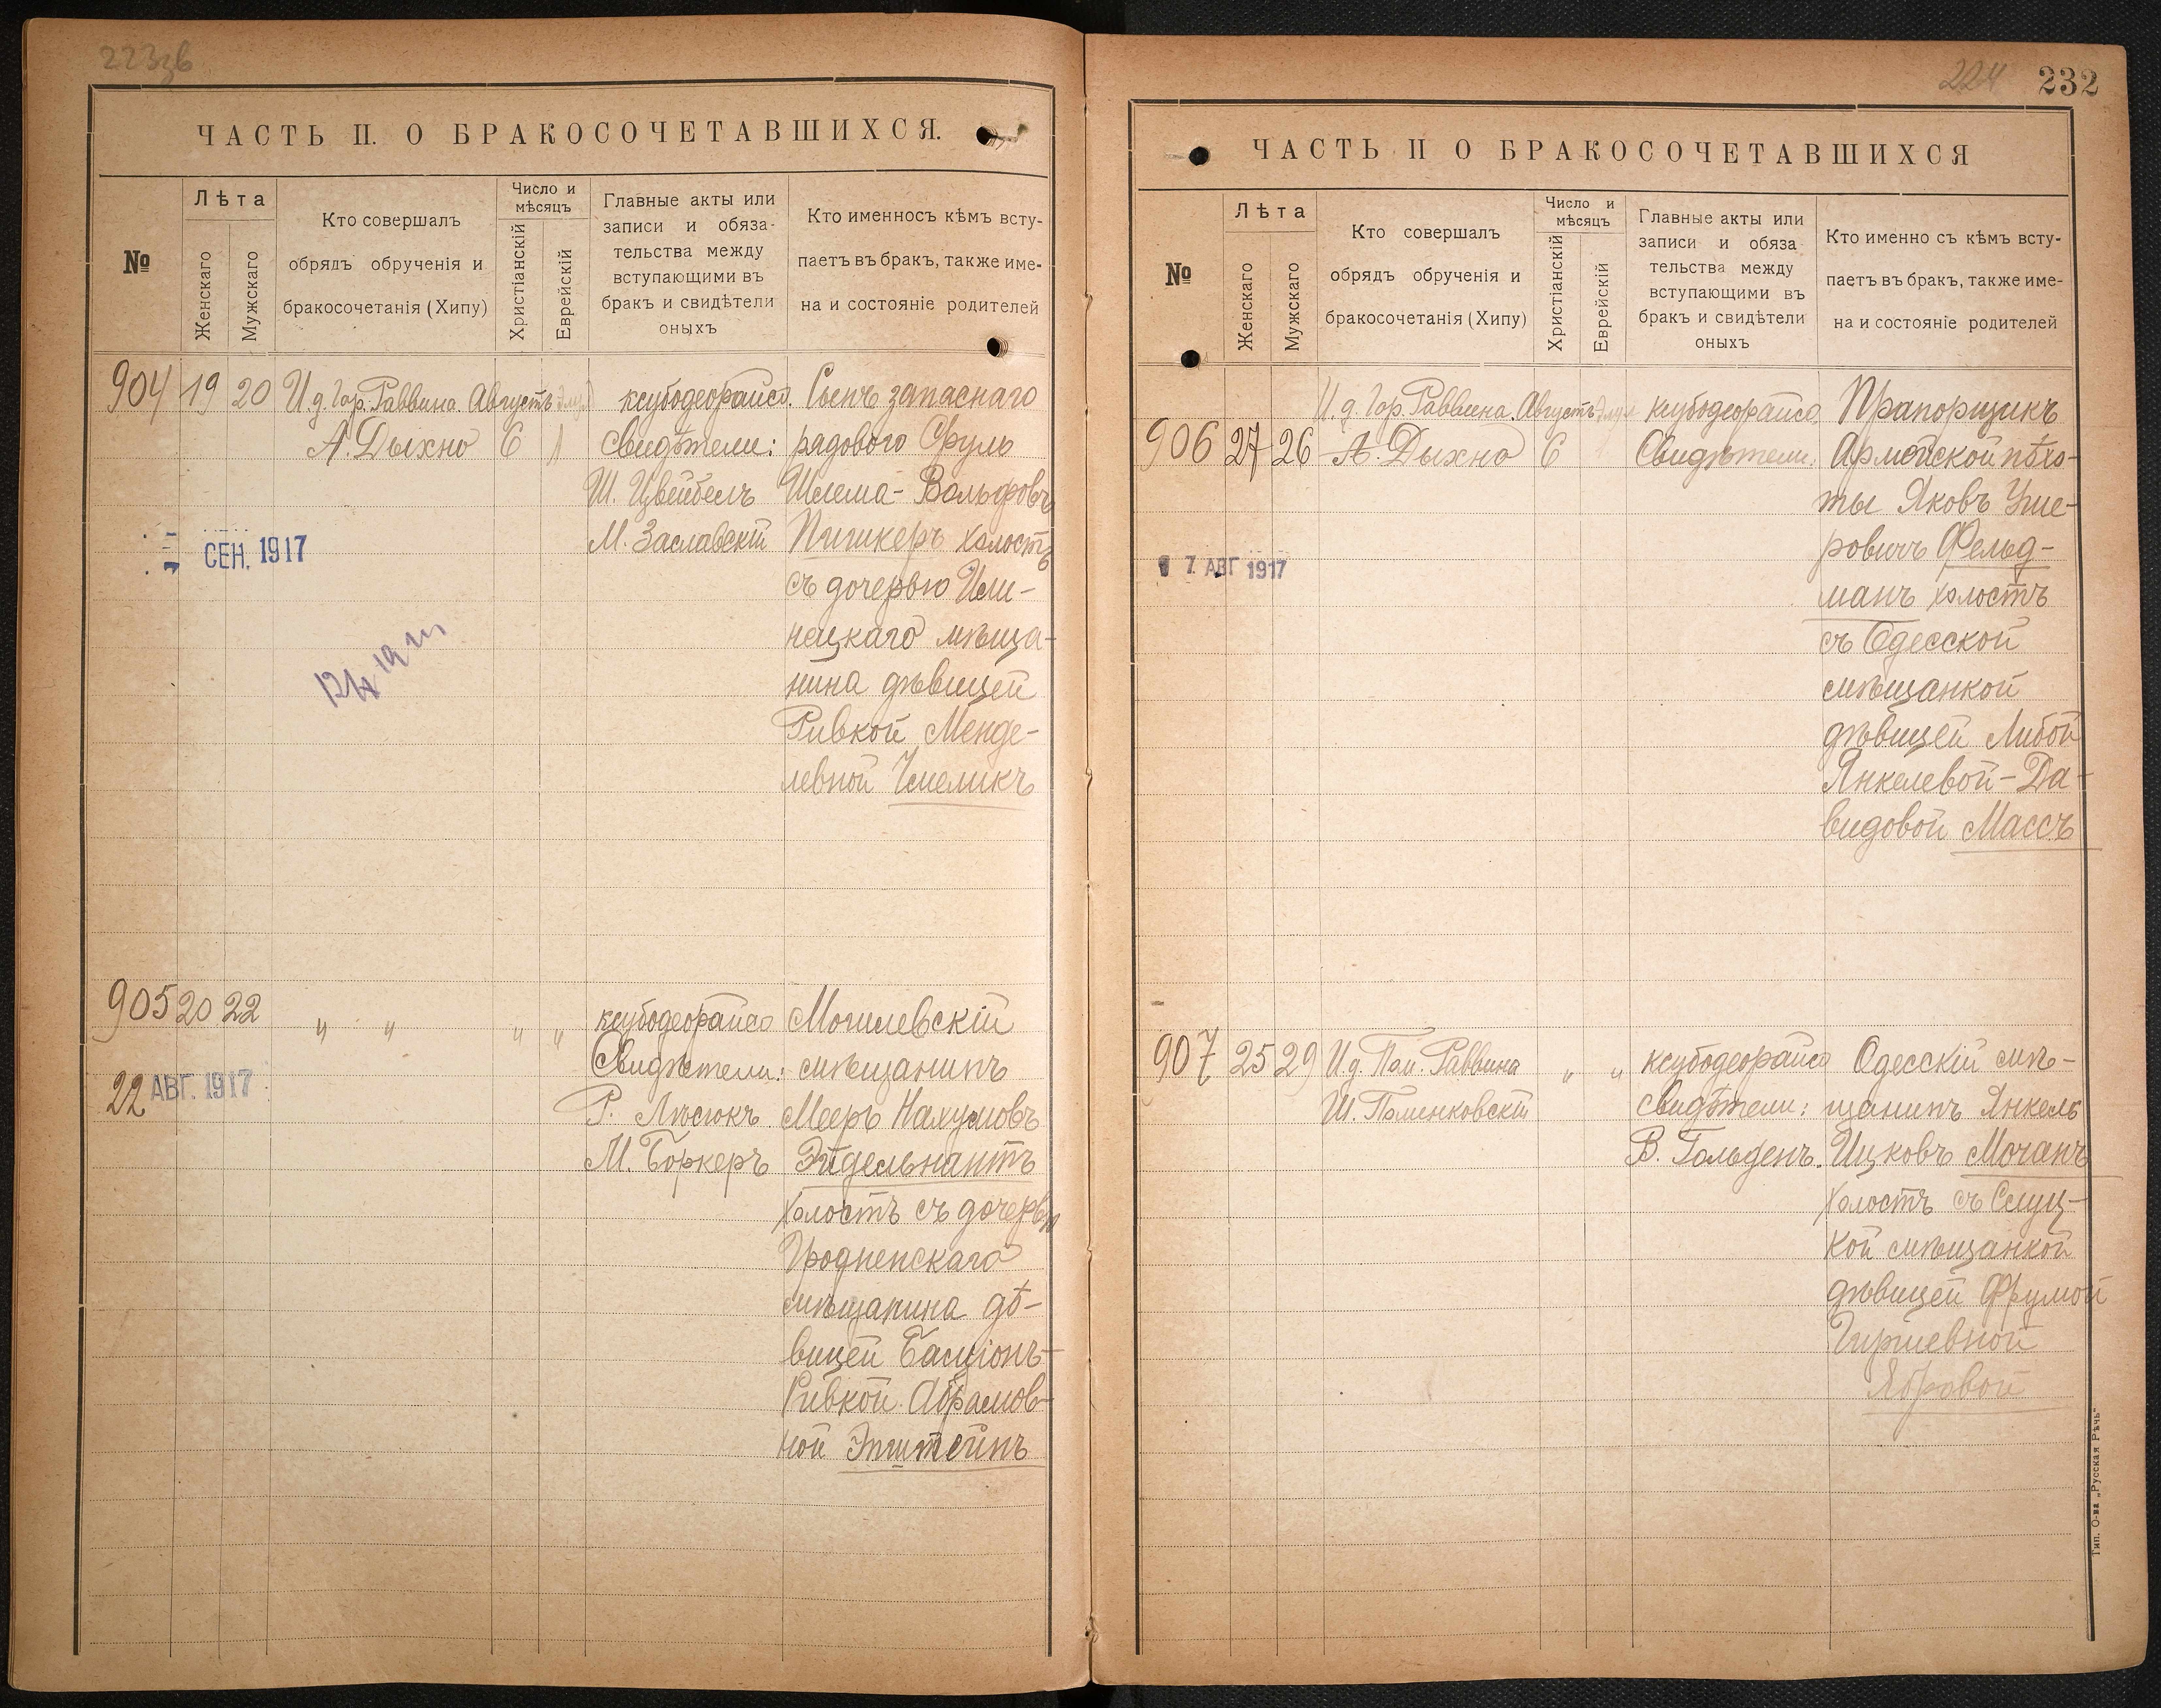 223зв
ЧАСТЬ II. О БРАКОСОЧЕТАВШИХСЯ.
№
Лѣта
Женскаго
Мужскаго
Кто совершалъ
обрядъ обрученія и
бракосочетанія (Хипу)
Число и
мѣсяцъ
Христіанскій
Еврейскій
Главные акты или
записи и обяза-
тельства между
вступающими въ
бракъ и свидѣтели
оныхъ
Кто именносъ кѣмъ всту-
паетъ въ бракъ, также име-
на и состояніе родителей
904 19 20 И.д. Гор. Раввина Августъ
А. Дыхно 6 1
ксубодеорайсо.
Свидѣтели:
Ш. Цвейбелъ
М. Заславскій
Сынъ запаснаго
рядового Сруль
Шлема-Вольфовъ
Пичикеръ холостъ
съ дочерью Или-
нецкаго мѣща-
нина дѣвицей
Ривкой Менде-
левной Чмеликъ
СЕН. 1917
905 20 22 " " " "
22 АВГ. 1917
ксубодеорайсо
Свидѣтели:
Р. Лысюкъ
М. Боркеръ
Могилевскій
мѣщанинъ
Мееръ Нахумовъ
Эйдельнантъ
холостъ съ дочерью
Гродненскаго
мѣщанина дѣ-
вицей Басціонъ-
Ривкой Абрамов-
ной Эпштейнъ
224 232
ЧАСТЬ II О БРАКОСОЧЕТАВШИХСЯ
№
Лѣта
Женскаго
Мужскаго
Кто совершалъ
обрядъ обрученія и
бракосочетанія (Хипу)
Число и
мѣсяцъ
Христіанскій
Еврейскій
Главные акты или
записи и обяза
тельства между
вступающими въ
бракъ и свидѣтели
оныхъ
Кто именно съ кѣмъ всту-
паетъ въ бракъ, также име-
на и состояніе родителей
И.д. Гор. Раввина Августъ
906 27 26 А. Дыхно 6
ксубодеорайсо
Свидѣтели:
Прапорщикъ
Армейской пѣхо-
ты Яковъ Уше-
ровичъ Фельд-
манъ холостъ
съ Одесской
мѣщанкой
дѣвицей Либой
Янкелевой-Да-
видовой Массъ
7 АВГ 1917
907 25 29 И.д. Пом. Раввина " "
Ш. Поменковскій
ксубодеорайсо
Свидѣтели:
В. Гольденъ.
Одесскій мѣ-
щанинъ Янкель
Ицковъ Мочанъ
холостъ съ Слуц-
кой мѣщанкой
дѣвицей Фрумой
Гиршевной
Ябровой
Тип. О-ва „Русская Рѣчь"